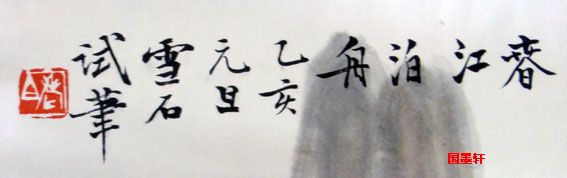 春
江
泊
舟
乙亥
元旦
雪石
試筆
国墨轩